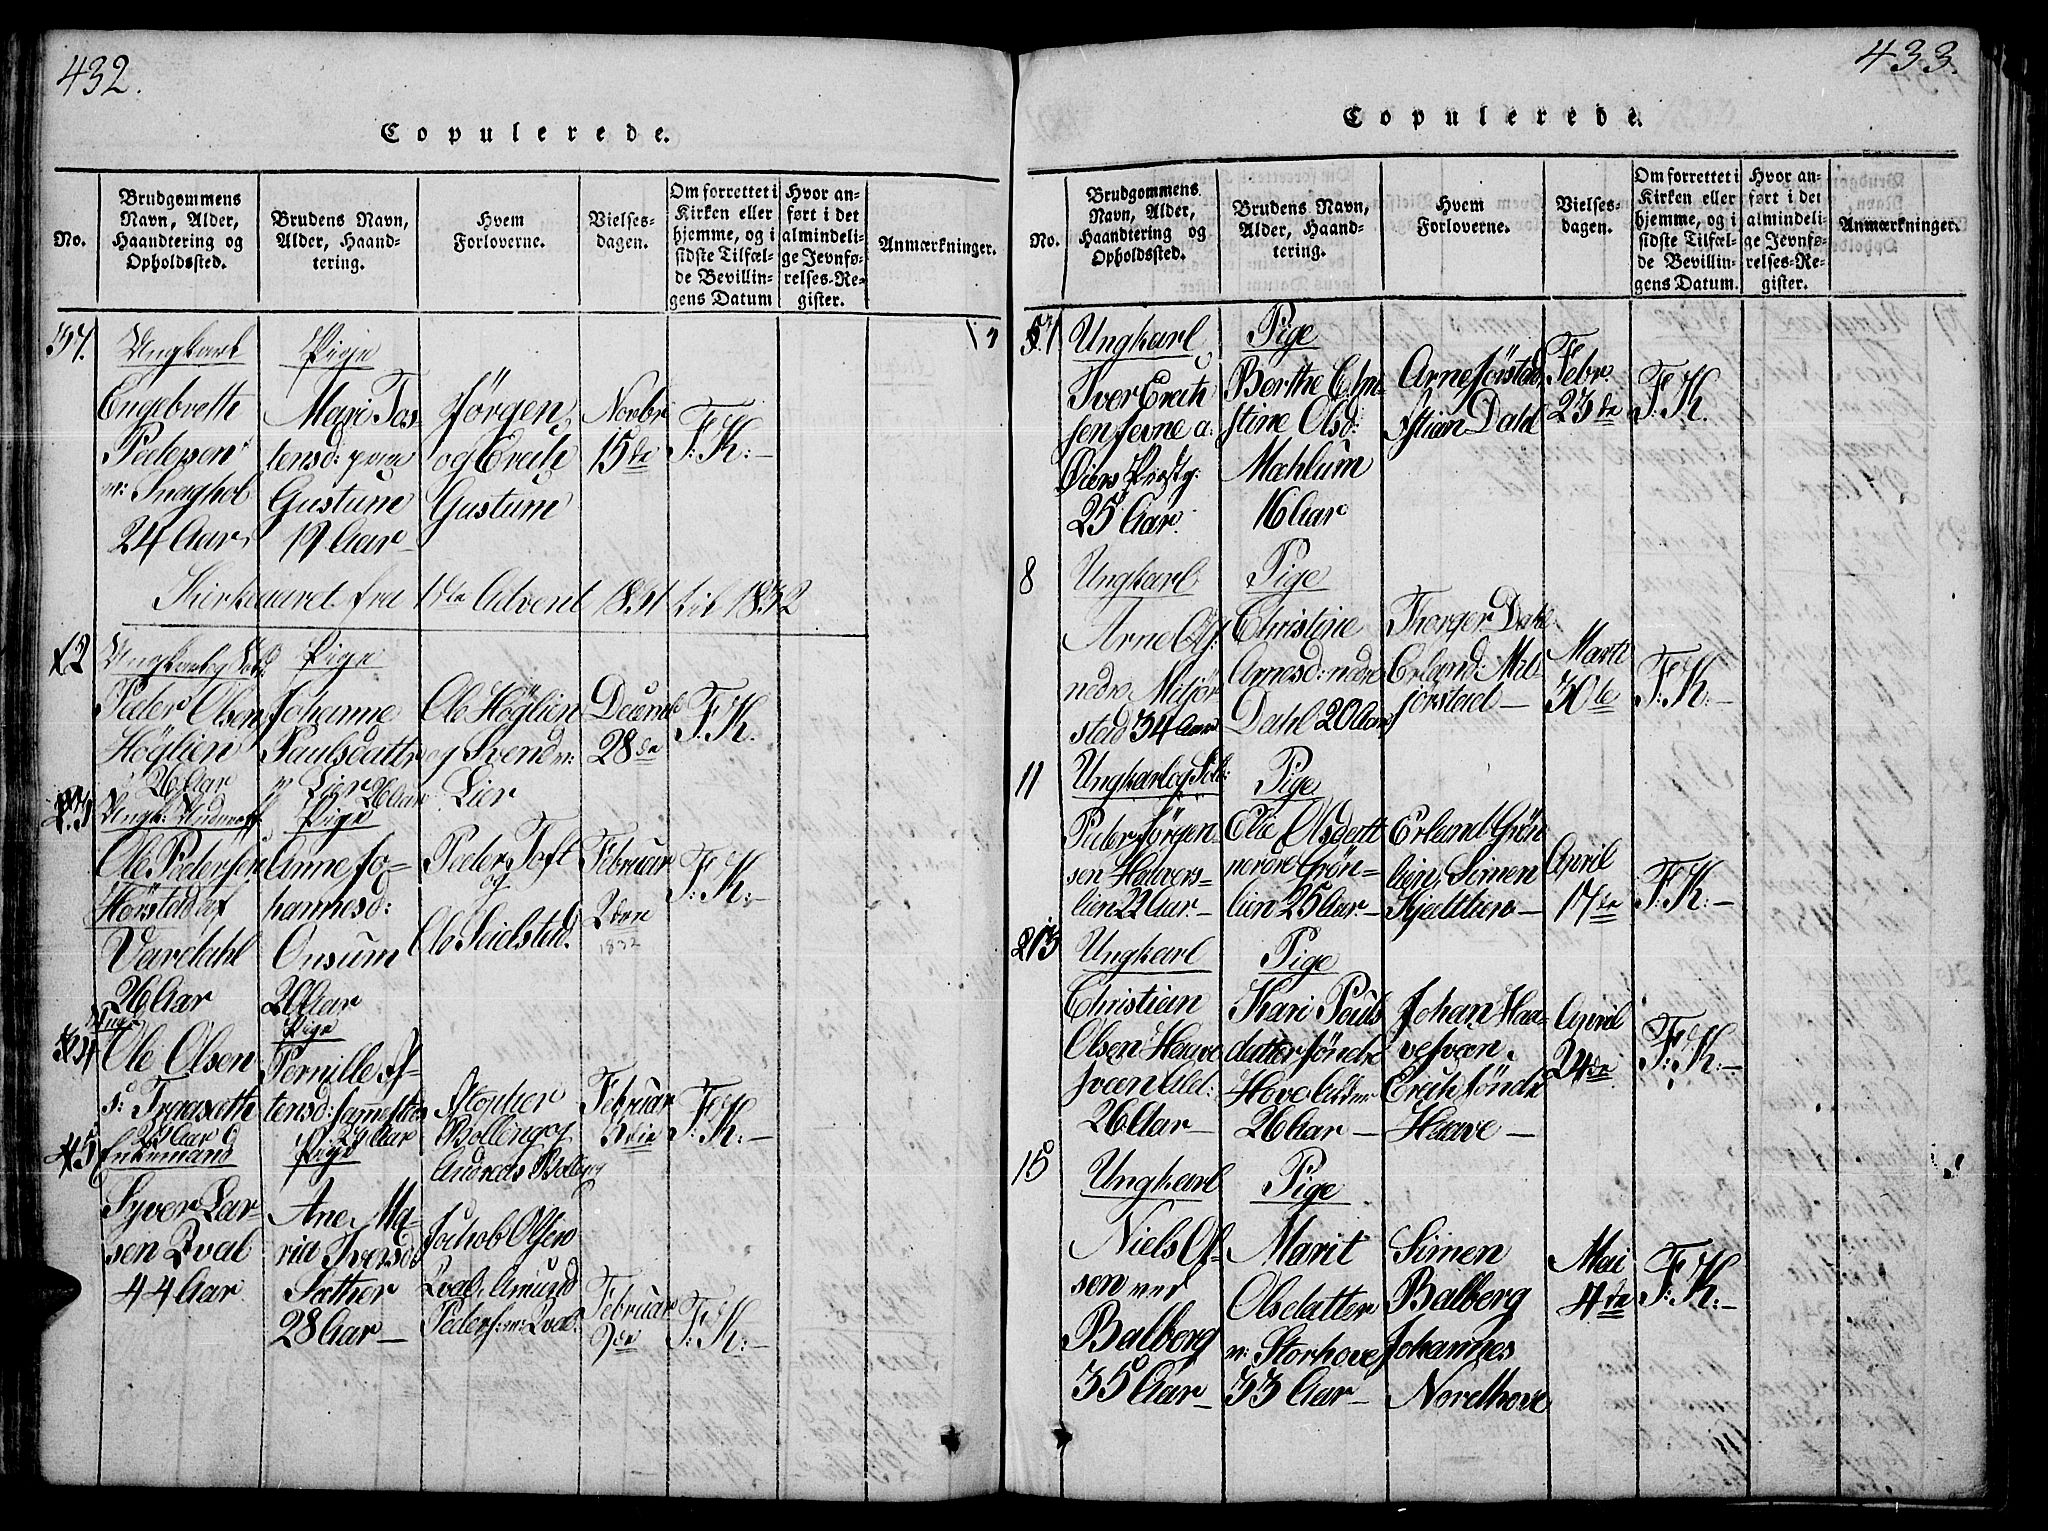 432.
Copulerede.
No.
Brudgommens Navn, Alder, Haandtering og Opholdssted.
Brudens Navn, Alder, Haandtering.
Hvem Forloverne.
Vielsesdagen.
Om forrettet i Kirken eller hjemme, og i sidste Tilfælde Bevillingens Datum
Hvor anført i det almindelige Jevnførelses-Register.
Anmærkninger.
37.
Ungkarl
Engebreth
Pedersen
24 Aar
Pige
Mari Tos-
tensd:
Gustum
19 Aar
Jørgen
og Erich
Gustum
Novbr
15de
F: K:
Kirkeaaret fra 1ste Advent 1831 til 1832
Peder Olsen
Höglien
26 Aar
Pige
Johanne
Paulsdatter
Lier 26 Aar
Ole Höglien
og Svend m:
Lier
Decemb
28de
F. K.
Ole Pedersen
Hörstad af
Vardahl
26 Aar
Pige
Anne Jo-
hannesd:
Onsum
20 Aar
Peder Toft
og
Ole Seielstad
Februar
2den
1832
F: K:
Ole Olsen
Pige
Pernille
Stopher
Bolling og
Andreas
Februar
F: K:
Enkemand
Syver Lar-
sen Qval
44 Aar
Pige
Ane Ma-
ria Iversd
Sæther
28 Aar
Jachob Olsen
Qval, Amund
Peders: m: Qval
Februar
F: K:
433.
Copulerede.
No.
Brudgommens Navn, Alder, Haandtering og Opholdssted.
Brudens Navn, Alder, Haandtering.
Hvem Forloverne.
Vielsesdagen.
Om forrettet i Kirken eller hjemme, og i sidste Tilfælde Bevillingens Datum.
Hvor anført i det almindelige Jevnførelses-Register.
Anmærkninger.
Ungkarl
Iver Erich
sen Jevne a:
Øiers Præstg:
25 Aar
Pige
Berthe Chri
stine Olsd:
Mæhlum
16 Aar
Arne Jörstad
Stian Dahl
Febr.
23de
F: K.
8
Ungkarl
Arne Ols:
nedre Miljør
stad 34 Aar
Pige
Christine
Arnesd: nedre
Dahl 20 Aar
Thorger Dahl
Erland: Mil
jorstad
Marti
30te
F: K:
11
Ungkarl og Sold:
Peder Jörgen
sen Haavers-
lien 22 Aar
Pige
Elie Olsdatt
nerdre Grön-
lien 25 Aar
Erland Grön
lien, Simen
Kjeltlien
April
17de
F: K:
Ungkarl
Christian
Olsen Haave
sveen
26 Aar
Pige
Kari Pouls
datter söndre
Hove
26 Aar
Johan Haa-
vesveen
Erich söndre
Haave
April
24de
F: K:
15
Ungkarl
Niels Ol-
sen ved
Balberg
35 Aar
Pige
Marit
Olsdatter
m: Storhove
33 Aar
Simen
Balberg
Johannes
Nordhove
Mai
4de
F: K: